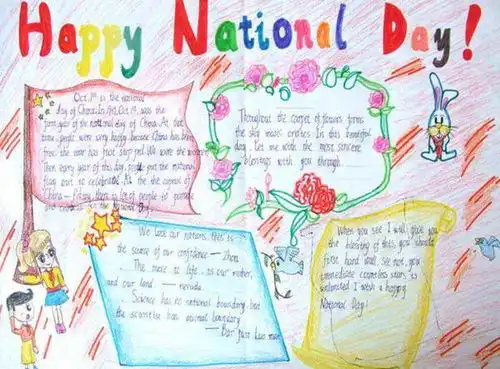 Happy National Day!
Oct. 1st is the national
day of China. In 1949, Oct 1st was the
first year of the national day of China. At that
time people were very happy because China has been
free, the war has just stopped. We were the
Then every year of this day, people put the national
flag out to celebrate. At the the capital of
China - Peking there is lot of people to
Throughout the carpet of flowers forms
the sky most In this beautiful
day, Let me with the most sincere
blessings with you through.
We love our nations, this is
the source of our confidence — Zhou
The there to life, is our mother,
and our land — neruda
Science has no national boundary, but
the scientist has national boundary
When you see I will give you
the blessing of this, you should
first hand soul, see not, you
immediate countless stars is
unlimited I wish a happy
National Day!